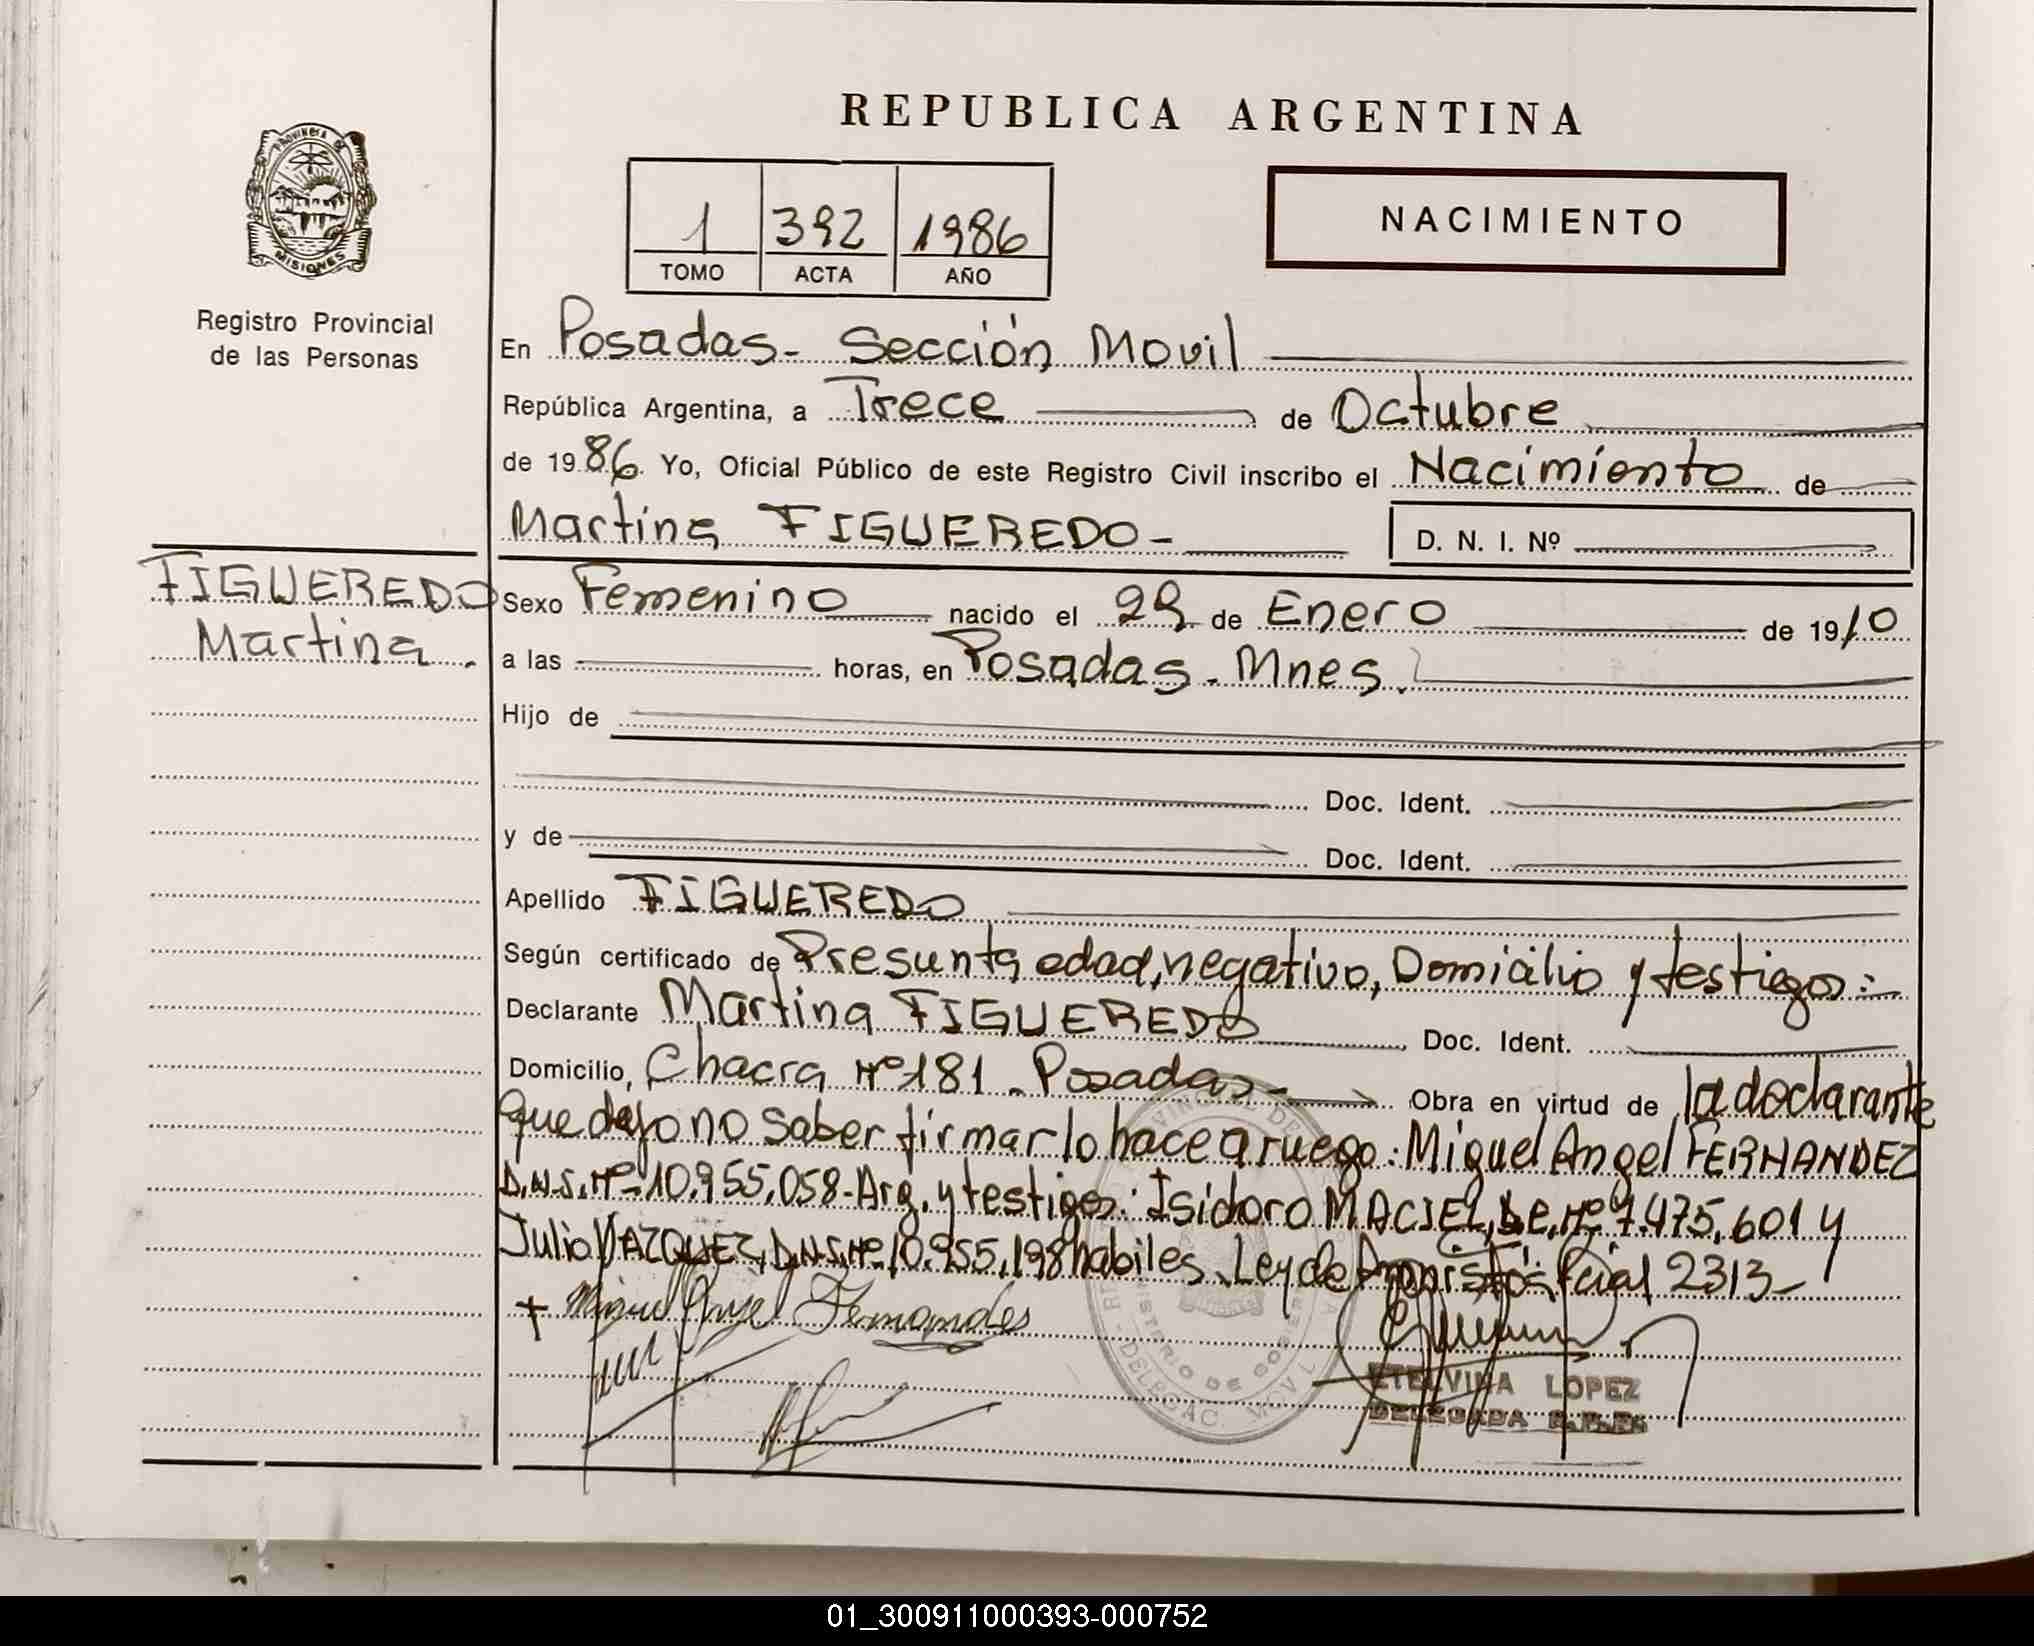 REPUBLICA ARGENTINA
PROVINCIA DE
MISIONES
Registro Provincial
de las Personas
1 392 1986
TOMO ACTA AÑO
NACIMIENTO
En Posadas - Sección Movil
República Argentina, a Trece de Octubre
de 19 86. Yo, Oficial Público de este Registro Civil inscribo el Nacimiento de
Martina FIGUEREDO -
D. N. I. Nº
FIGUEREDO
Martina.
Sexo Femenino nacido el 29 de Enero de 19 10
a las horas, en Posadas - Mnes.
Hijo de
Doc. Ident.
y de Doc. Ident.
Apellido FIGUEREDO
Según certificado de Presunta edad, negativo, Domicilio y testigos:
Declarante Martina FIGUEREDO Doc. Ident.
Domicilio, Chacra Nº 181 - Posadas - Obra en virtud de la declarante
que dejo no saber firmar lo hace a ruego: Miguel Angel FERNANDEZ
D.N.I. Nº 10.955.058 - Arg. y testigos: Isidoro MACIEL, L.E. Nº 7.475.601 y
Julio VAZQUEZ, D.N.I. Nº 10.955.198 habiles. Ley de Pcial 2313 -
+ Miguel Angel Fernandes
ETELVINA LOPEZ
DELEGADA R.P.P.
01_300911000393-000752